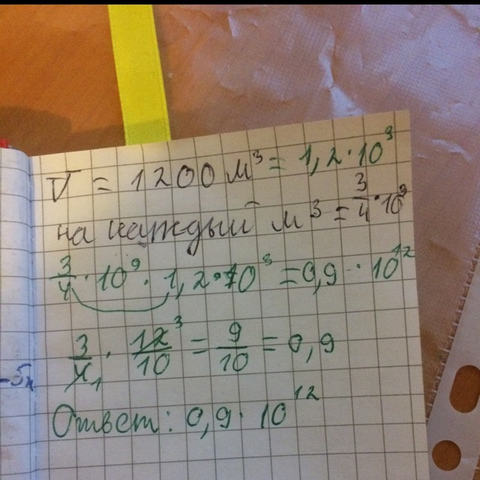 V = 1200 м³ = 1,2·10³
на каждый м³ = 3/4·10⁹
3/4·10⁹·1,2·10³ = 0,9·10¹²
3/4 1 · 12 3/10 = 9/10 = 0,9
-5п
Ответ: 0,9·10¹²